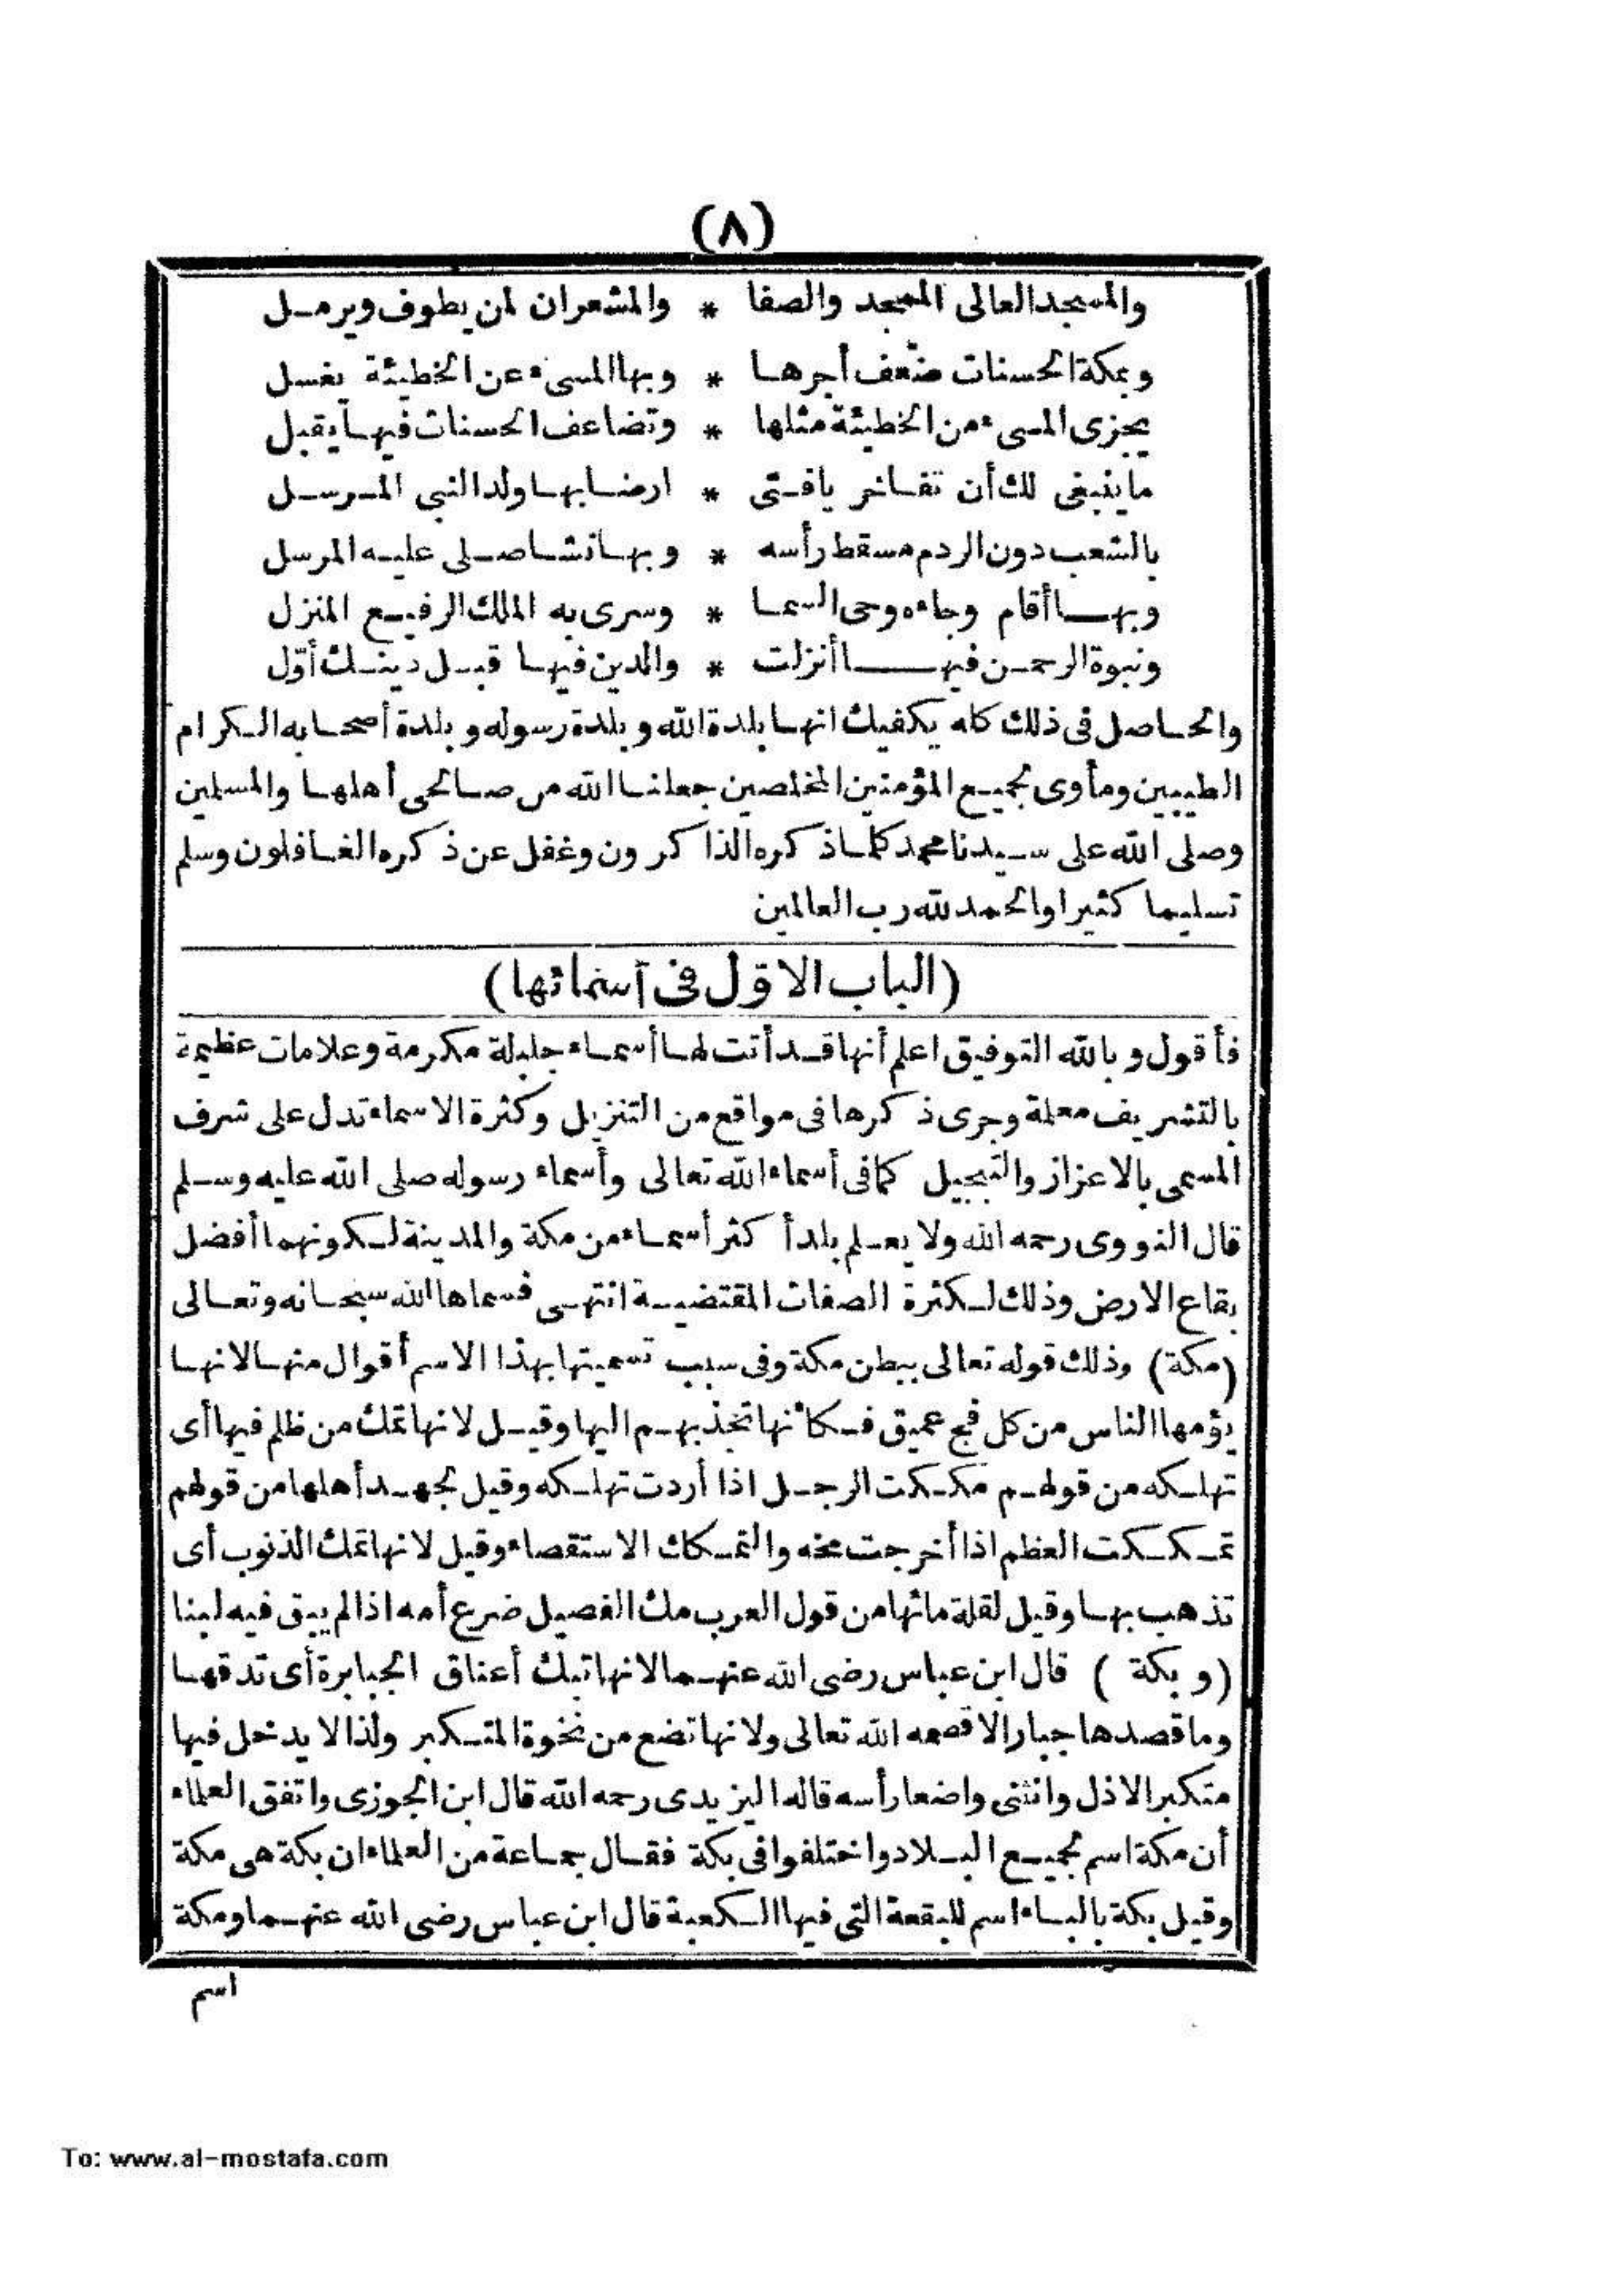 (٨)
والمسجد العالى الممجد والصفا * والمشعران لمن يطوف ويرمل
وبمكة الحسنات ضعف أجرها * وبها المسىء عن الخطيئة يغسل
يجزى المسىء من الخطيئة مثلها * وتضاعف الحسنات فيها يقبل
ما ينبغى لك أن تفاخر يافتى * ارضا بها ولد النبى المرسل
بالشعب دون الردم مسقط رأسه * وبها نشا صلى عليه المرسل
وبها أقام وجاءه وحى السما * وسرى به الملك الرفيع المنزل
ونبوة الرحمن فيها أنزلت * والدين فيها قبل دينك أوّل
والحاصل فى ذلك كله يكفيك انها بلدة الله وبلدة رسوله وبلدة أصحابه الكرام
الطيبين ومأوى لجميع المؤمنين المخلصين جعلنا الله من صالحى أهلها والمسلين
وصلى الله على سيدنا محمد كلما ذكره الذاكرون وغفل عن ذكره الغافلون وسلم
تسليما كثيرا والحمد لله رب العالمين
(الباب الاوّل فى أسمائها)
فأقول وبالله التوفيق اعلم أنها قد أتت لها أسماء جليلة مكرمة وعلامات عظيمة
بالتشريف معلمة وجرى ذكرها فى مواقع من التنزيل وكثرة الاسماء تدل على شرف
المسمى بالاعزاز والتبجيل كما فى أسماء الله تعالى وأسماء رسوله صلى الله عليه وسلم
قال النووى رحمه الله ولا يعلم بلد أكثر أسماء من مكة والمدينة لكونهما أفضل
بقاع الارض وذلك لكثرة الصفات المقتضية انتهى فسماها الله سبحانه وتعالى
(مكة) وذلك قوله تعالى ببطن مكة وفى سبب تسميتها بهذا الاسم أقوال منها لانها
يؤمها الناس من كل فج عميق فكأنها تجذبهم اليها وقيل لانها تمك من ظلم فيها أى
تهلكه من قولهم مككت الرجل اذا أردت تهلكه وقيل لجهد أهلها من قولهم
تمككت العظم اذا أخرجت مخه والتمكاك الاستقصاء وقيل لانها تمك الذنوب أى
تذهب بها وقيل لقلة مائها من قول العرب مك الفصيل ضرع أمه اذا لم يبق فيه لبنا
(وبكة) قال ابن عباس رضى الله عنهما لانها تبك أعناق الجبابرة أى تدقها
وما قصدها جبار الا قصمه الله تعالى ولانها تضع من نخوة المتكبر ولذا لا يدخل فيها
متكبر الا ذل وانثنى واضعا رأسه قاله اليزيدى رحمه الله قال ابن الجوزى واتفق العلماء
أن مكة اسم لجميع البلاد واختلفوا فى بكة فقال جماعة من العلماء ان بكة هى مكة
وقيل بكة بالباء اسم للبقعة التى فيها الكعبة قال ابن عباس رضى الله عنهما ومكة
اسم
To: www.al-mostafa.com